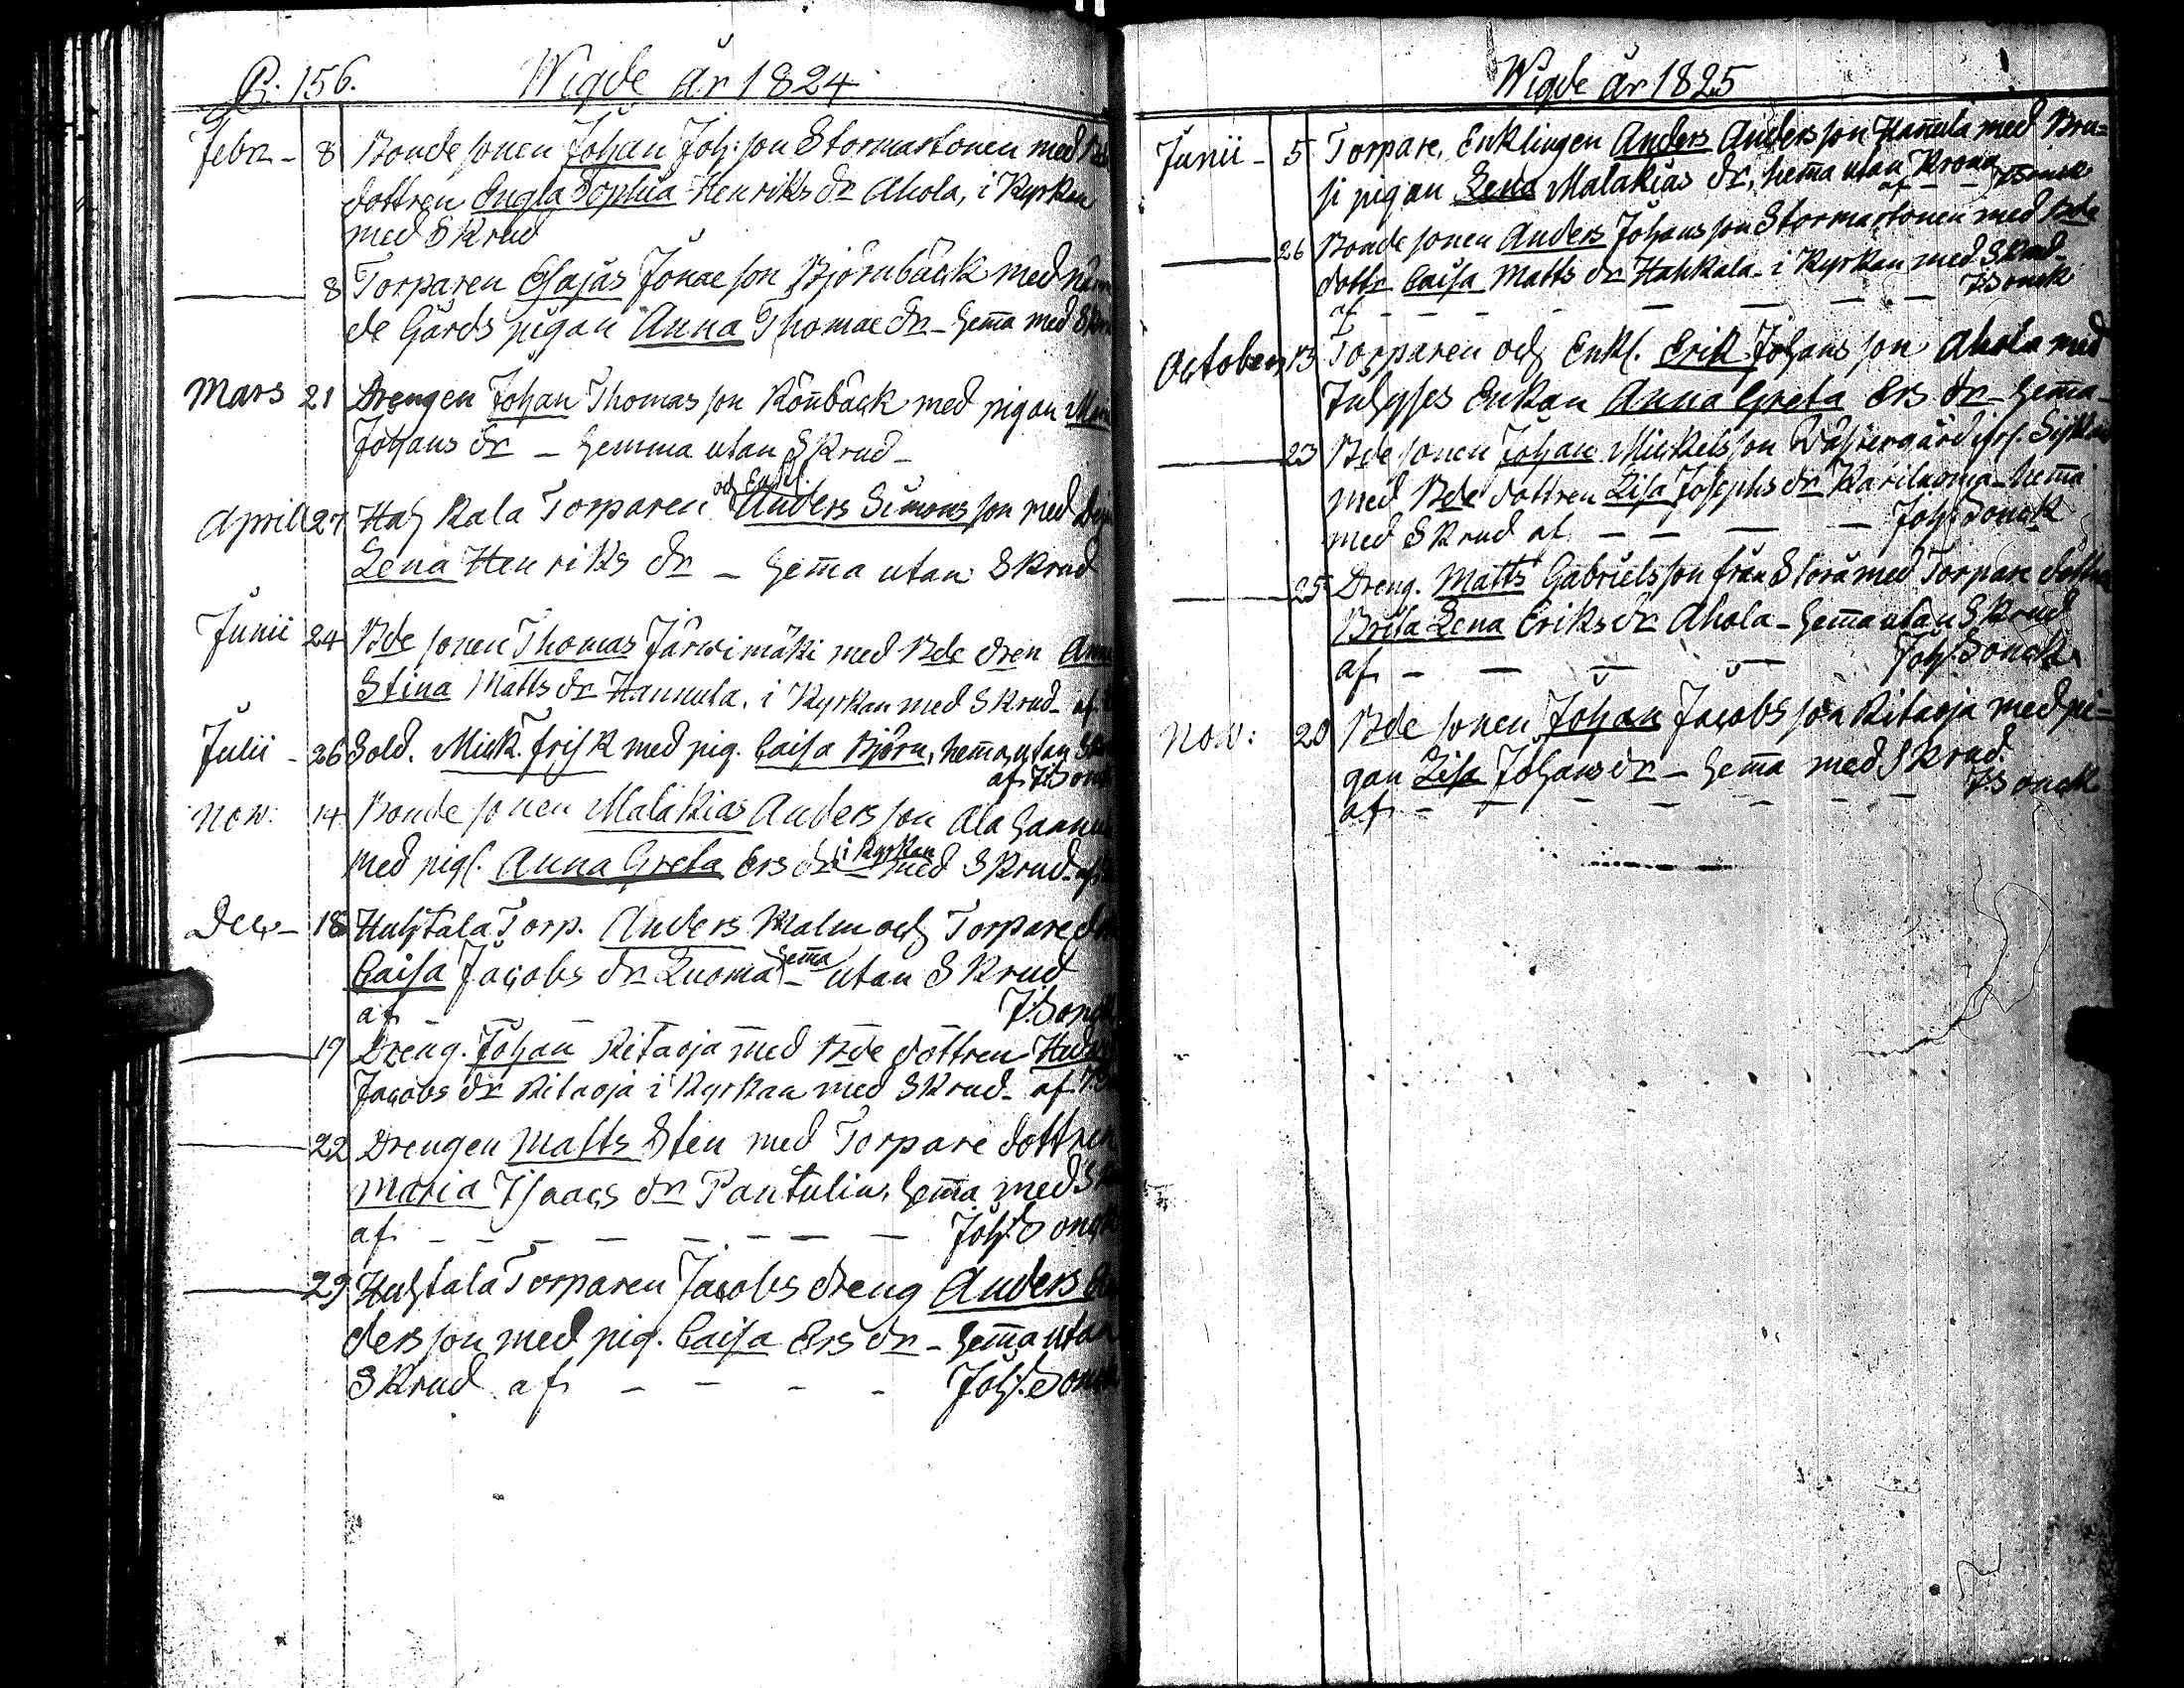 P. 156. Wigde år 1824
Febr - 8 Bonde sonen Johan Joh:son Stormartonen med
dottren Engla Sophia Henriks dr Ahola, i Kyrkan
med Skrud
8 Torparen Esajas Jonae son Björnbäck med
de Gårds pigan Anna Thomae dr - hem̄a med
Mars 21 Drengen Johan Thomas son Rön̄bäck med pigan
Johans dr - hemma utan Skrud -
och Enkl.
April 27 Hahkala Torparen Anders Simons son med
Lena Henriks dr - hem̄a utan Skrud
Junii 24 Bde sonen Thomas Järwimäki med Bde dren
Stina Matts dr Hannula, i Kyrkan med Skrud - af
Julii - 26 Sold. Mick. Frisk med pig. Caisa Björn, hem̄a utan
af J:Sonck
Now: 14 Bonde sonen Malakias Anders son Ala
i Kyrkan
med pig. Anna Greta Ers dr - med Skrud -
Dec - 18 Huhtala Torp. Anders Malm och Torpare
hem̄a
Caisa Jacobs dr Luoma - utan Skrud
af - - - - J:Sonck
19 Dreng. Johan Ritaoja med Bde dottren
Jacobs dr Ritaoja i Kyrkan med Skrud - af
22 Drengen Matts Sten med Torpare dottren
Maria Isaacs dr Pantulin, hem̄a med
af - - - - - - - - Joh: Sonck
29 Huhtala Torparen Jacobs dreng Anders
ders son med pig. Caisa Ers dr - hem̄a utan
Skrud af - - - - Joh: Sonck
Wigde år 1825
Junii - 5 Torpare, Enklingen Anders Anders son Han̄ula med
si pigan Lena Malakias dr, hem̄a utan Krona
af - - J:Sonck
26 Bonde sonen Anders Johans son Stormartonen med Bde
dottr Caisa Matts dr Hahkala - i Kyrkan med Skrud -
af - - - - - - - - J:Sonck
October 13 Torparen och Enkl. Erik Johans son Ahola med
Enkan Anna Greta Ers dr - hem̄a -
23 Bde sonen Johan Mickels son
med Bde dottren Lisa Josephs dr Kariluoma - hem̄a
med Skrud af - - - - Joh: Sonck
25 Dreng. Matts Gabriels son från Storå med Torpare dottren
Brita Lena Eriks dr Ahola - hem̄a utan Skrud
af - - - - Joh: Sonck
Nov: 20 Bde sonen Johan Jacobs son Ritaoja med pi=
gan Lisa Johans dr - hem̄a med Skrud
af - - - - - - - J:Sonck